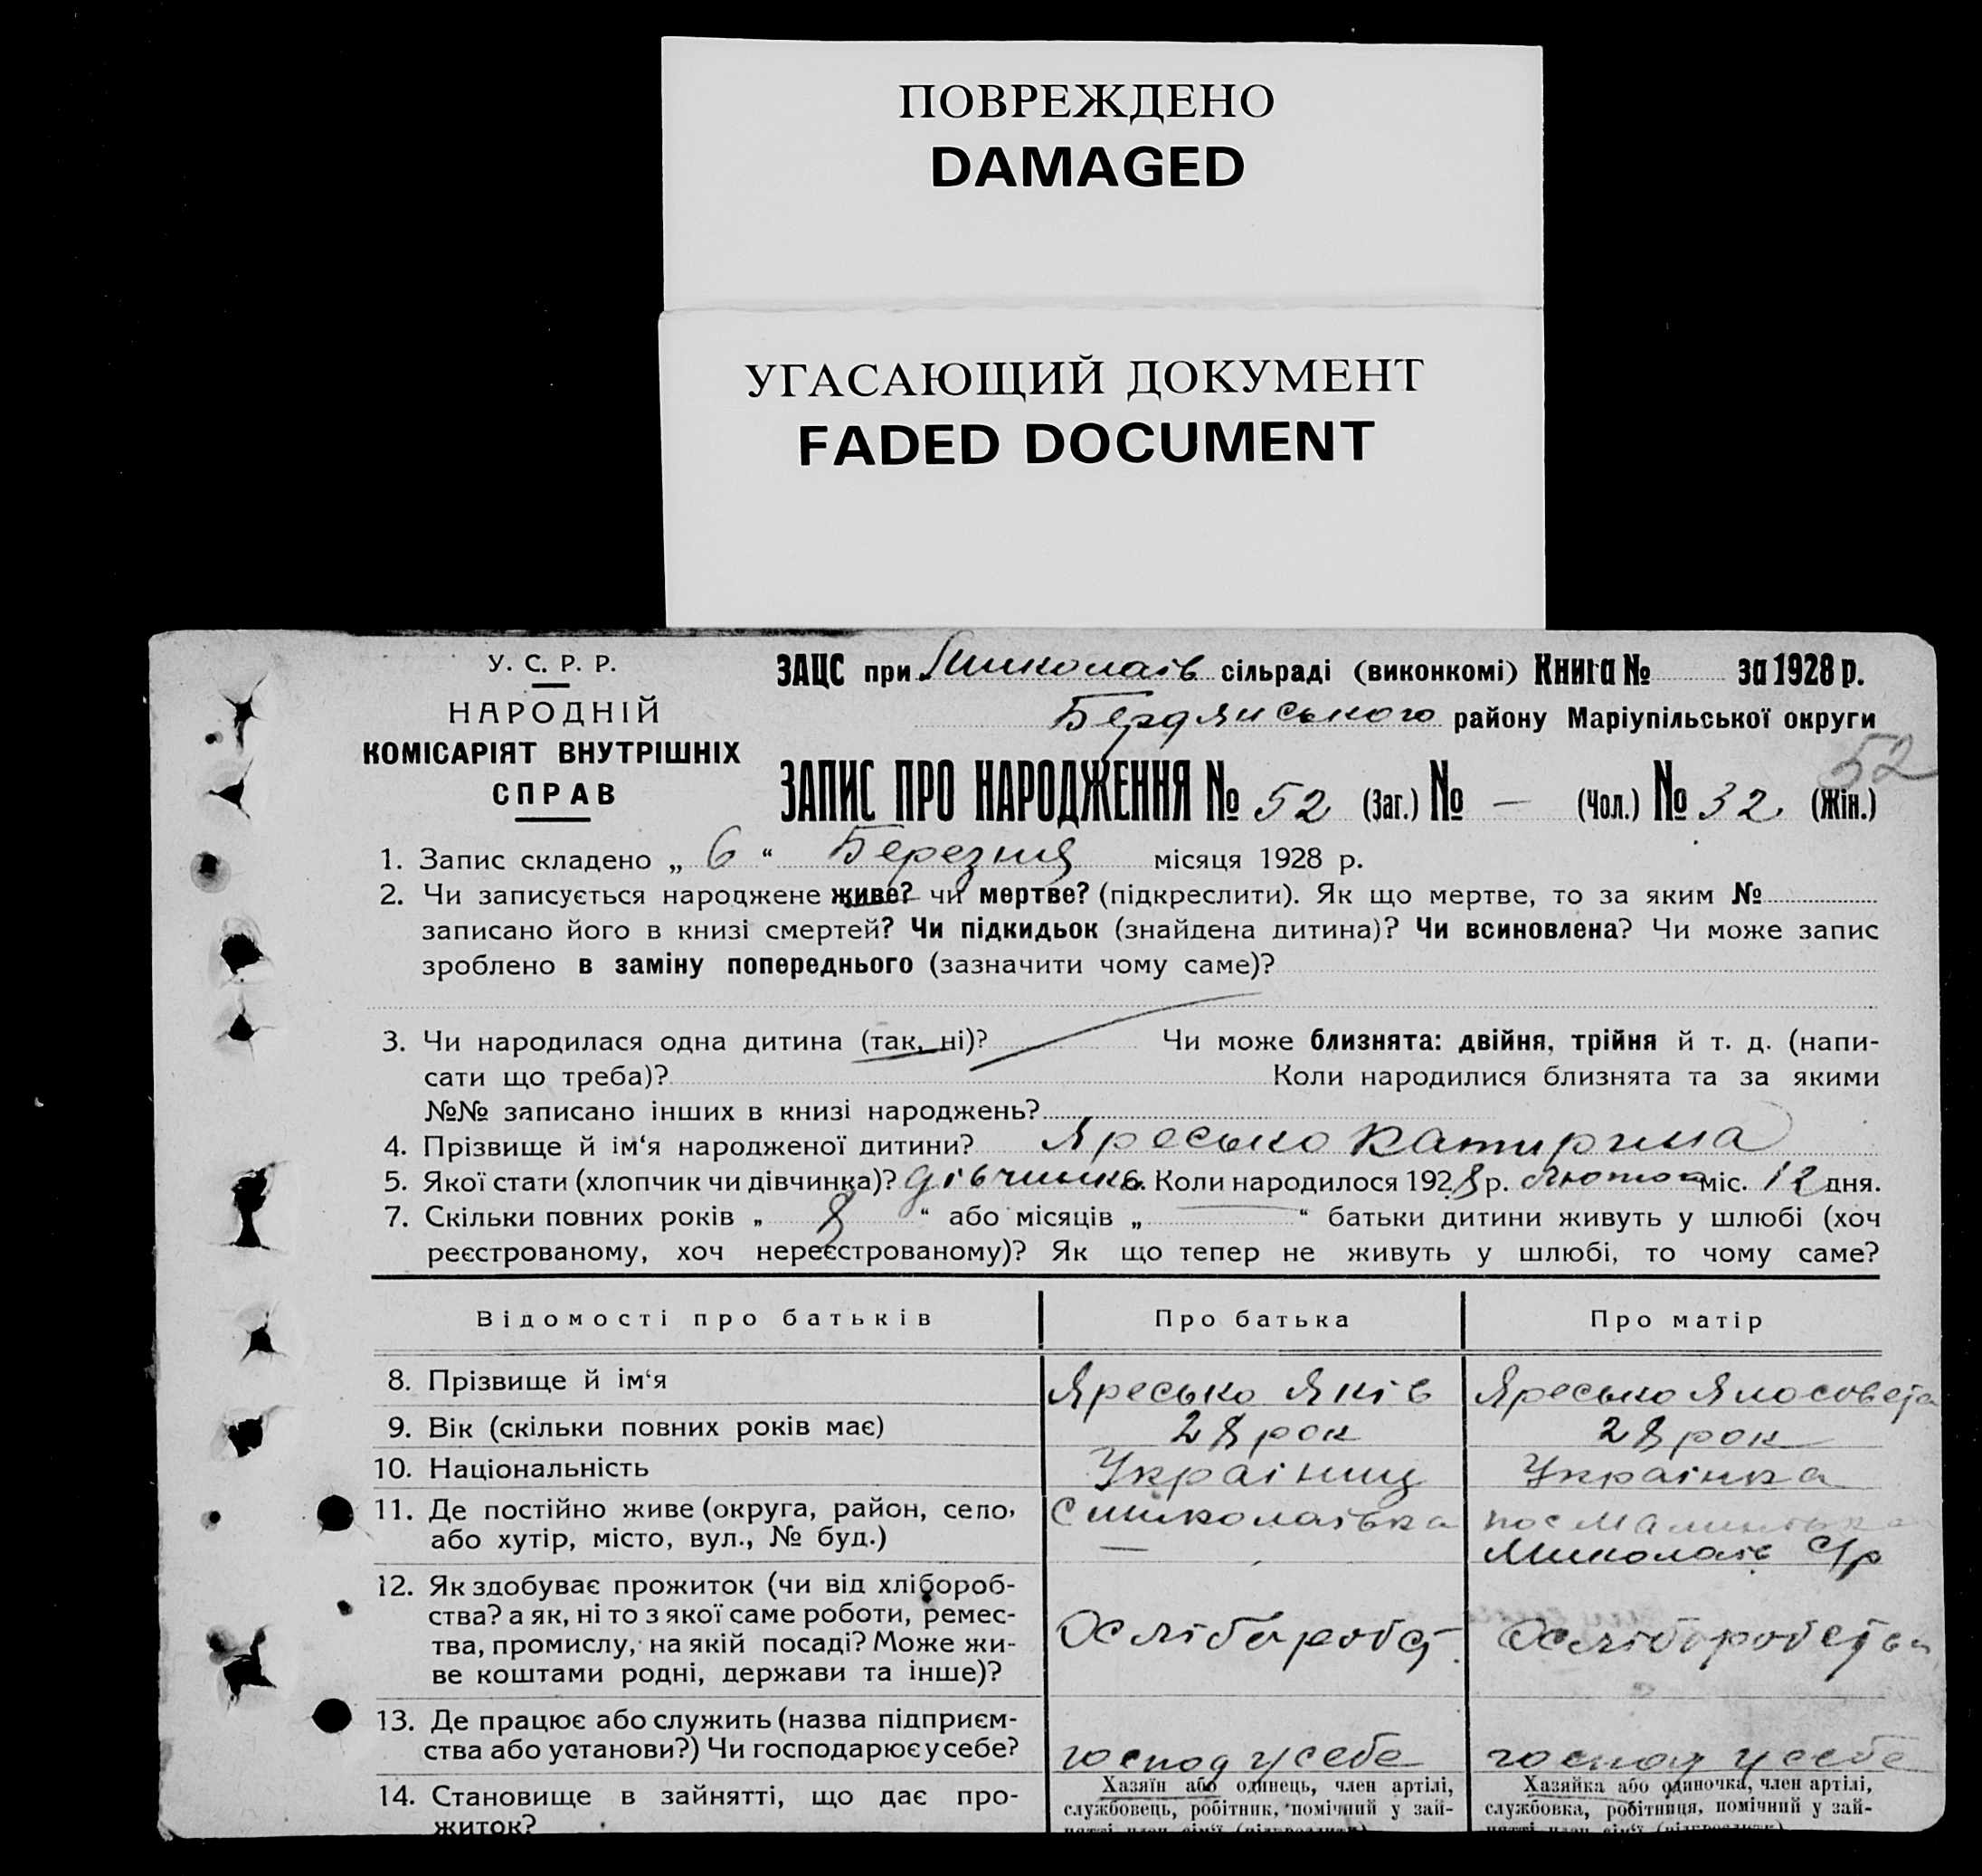 ПОВРЕЖДЕНО
DAMAGED
УГАСАЮЩИЙ ДОКУМЕНТ
FADED DOCUMENT
У. С. Р. Р.
НАРОДНІЙ
КОМІСАРІЯТ ВНУТРІШНІХ
СПРАВ
ЗАЦС при Миколаїв сільраді (виконкомі) Книга № за 1928 р.
Бердянського району Маріупільської округи
52
ЗАПИС ПРО НАРОДЖЕННЯ № 52 (Заг.) № — (Чол.) № 32 (Жін.)
1. Запис складено „ 6 “ Березня місяця 1928 р.
2. Чи записується народжене живе? чи мертве? (підкреслити). Як що мертве, то за яким №
записано його в книзі смертей? Чи підкидьок (знайдена дитина)? Чи всиновлена? Чи може запис
зроблено в заміну попереднього (зазначити чому саме)?
3. Чи народилася одна дитина (так, ні)? Чи може близнята: двійня, трійня й т. д. (напи-
сати що треба)? Коли народилися близнята та за якими
№№ записано інших в книзі народжень?
4. Прізвище й ім‘я народженої дитини? Яресько Катирина
5. Якої стати (хлопчик чи дівчинка)? дівчинка. Коли народилося 1928 р. лютого міс. 12 дня.
7. Скільки повних років „ 8 “ або місяців „ — “ батьки дитини живуть у шлюбі (хоч
реєстрованому, хоч нереєстрованому)? Як що тепер не живуть у шлюбі, то чому саме?
Відомості про батьків Про батька Про матір
8. Прізвище й ім‘я Яресько Яків Яресько
9. Вік (скільки повних років має) 28 рок 28 рок
10. Національність Українец Українка
11. Де постійно живе (округа, район, село, с Миколаївка пос
або хутір, місто, вул., № буд.) — Миколаїв С/р
12. Як здобуває прожиток (чи від хлібороб-
ства? а як, ні то з якої саме роботи, ремес-
тва, промислу, на якій посаді? Може жи- Хлібороб Хліборобства
ве коштами родні, держави та інше)?
13. Де працює або служить (назва підприєм-
ства або установи?) Чи господарює у себе? господ у себе господ у себе
14. Становище в зайнятті, що дає про-
житок?
Хазяїн або одинець, член артілі,
службовець, робітник, помічний у зай-
нятті член сім‘ї (підкреслити)
Хазяйка або одиночка, член артілі,
службовка, робітниця, помічний у зай-
нятті член сім‘ї (підкреслити)